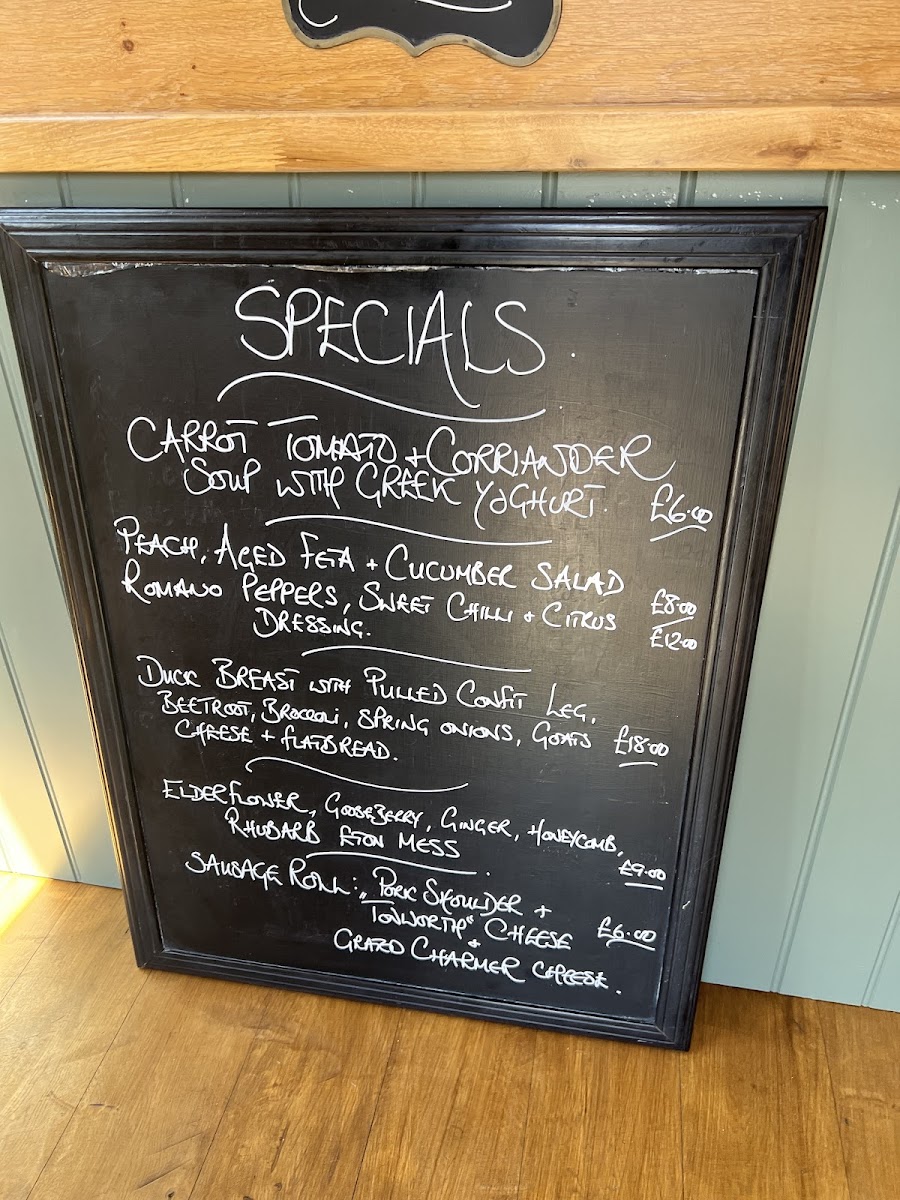 SPECIALS.
CARROT TOMATO + CORRIANDER
SOUP WITH GREEK YOGHURT. £6.00
PEACH, AGED FETA + CUCUMBER SALAD £8.00
ROMANO PEPPERS, SWEET CHILLI + CITRUS £12.00
DRESSING.
DUCK BREAST WITH PULLED CONFIT LEG,
BEETROOT, BROCCOLI, SPRING ONIONS, GOATS £18.00
CHEESE + FLATBREAD.
ELDERFLOWER, GOOSEBERRY, GINGER, HONEYCOMB,
RHUBARB ETON MESS. £9.00
SAUSAGE ROLL: "PORK SHOULDER +
CHEESE £6.00
+
CHARMER CHEESE.